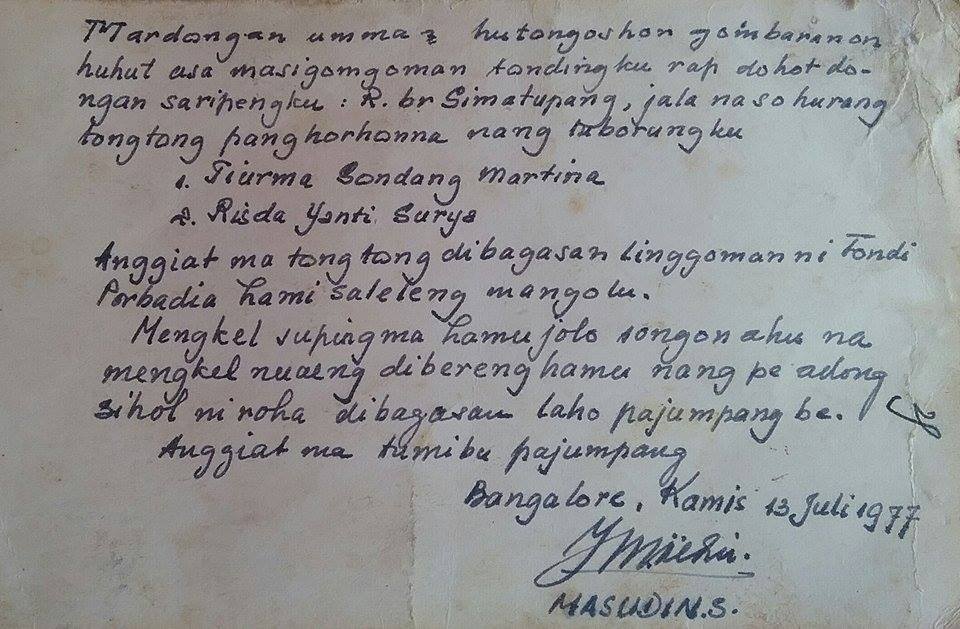 Mardongan umma 2 hutongoshon gombaranon
huhut asa masigomgoman tondingku rap dohot do-
ngan saripengku : R. br Simatupang, jala naso hurang
tongtong panghorhonna nang taborungku
1. Tiurma Sondang Martina
2. Risda Yanti Surya
Anggiat ma tongtong dibagasan linggoman ni Tondi
Porbadia hami saleleng mangolu.
Mengkel suping ma hamu jolo songon ahu na
mengkel nuaeng dibereng hamu nang pe adong
sihol ni roha dibagasan laho pajumpang be.
Anggiat ma tumibu pajumpang
Bangalore, Kamis 13 Juli 1977
MASUDIN.S.